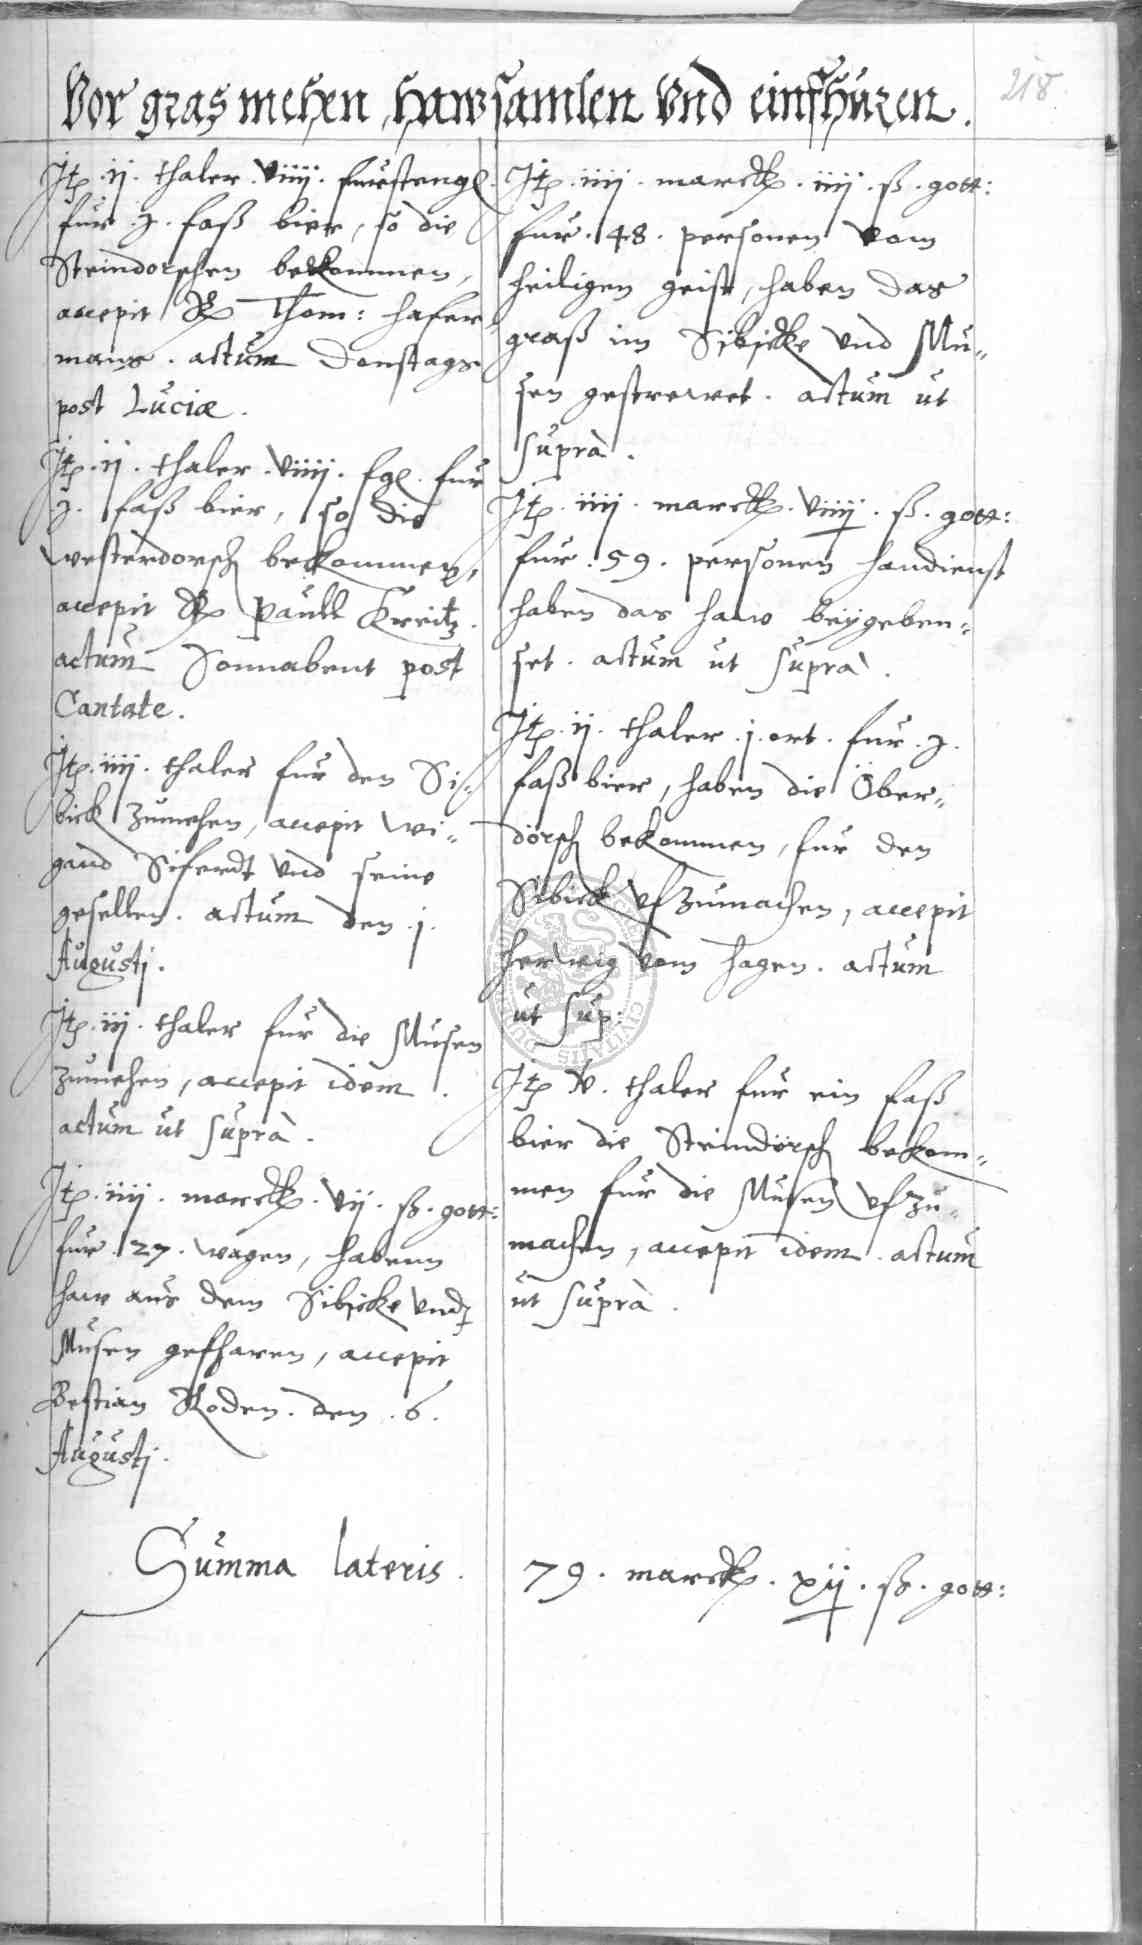 218
Vor gras mehen, haw samlen Vnd einfhüren.
Itp. ij. thaler. viiij. furstengl.
für .j. faß bier, so die
Steindorschen bekommen,
accepit Thom: hafer
mans. actum Donstags
post Luciæ.
Itp. ij. thaler. viiij. fgl. für
j. faß bier, so die
westerdorsch bekommen,
accepit Paull Kreitz.
actum Sonnabent post
Cantate.
Itp. iiij. thaler für den Si„
bick zumehen, accepit wi„
gand Siferdt vnd seine
gesellen. actum den .j.
Augustj.
Itp. iij. thaler für die Musen
zumehen, accepit idem.
actum ut suprà.
Itp. iiij. marck. vij. ß. gott:
für .27. wagen, habenn
haw aus dem Sibicke vnd
Musen gefharen, accepit
Bestian Roden. den .6.
Augustj.
Itp. iiij. marck. iiij. ß. gott:
fur .48. personen vom
heiligen geist, haben das
graß im Sibicke vnd Mu„
sen gestrewet. actum ut
suprà.
Itp. iiij. marck. viiij. ß. gott:
fur .59. personen handienst
haben das haw beÿgeben„
set. actum ut suprà.
Itp. ij. thaler .j. ort. für .j.
faß bier, haben die Öber„
dörsch bekommen, für den
Sibick vfzumachen, accepit
herwig vom hagen. actum
ut sup:
Itp v. thaler für ein faß
bier die Steindörsch bekom„
men für die Musen vfzu„
machen, accepit idem. actum
ut suprà.
Summa lateris. 79. marck. xij. ß. gott: